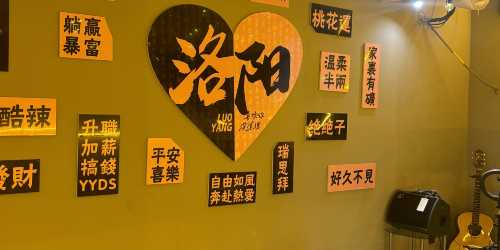 躺贏
暴富
桃花運
洛阳
LUO
YANG
溫柔
半兩
家裏有礦
酷辣
升職
加薪
搞錢
YYDS
平安
喜樂
絶絶子
瑞思拜
發財
自由如風
奔赴熱愛
好久不見